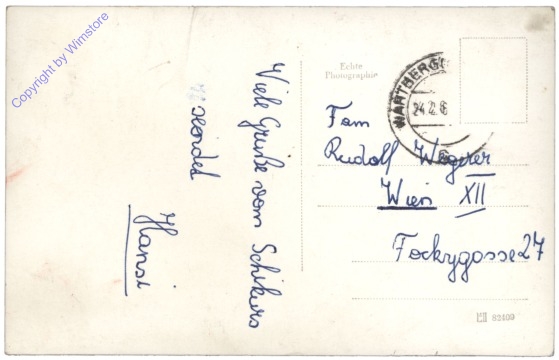 Copyright by Wimstore
Viele Grüße vom Schikurs
sendet
Hansi
Echte
Photographie
WARTBERG
24.2.6
Fam
Rudolf Wegerer
Wien XII
Fockygasse 27
82400